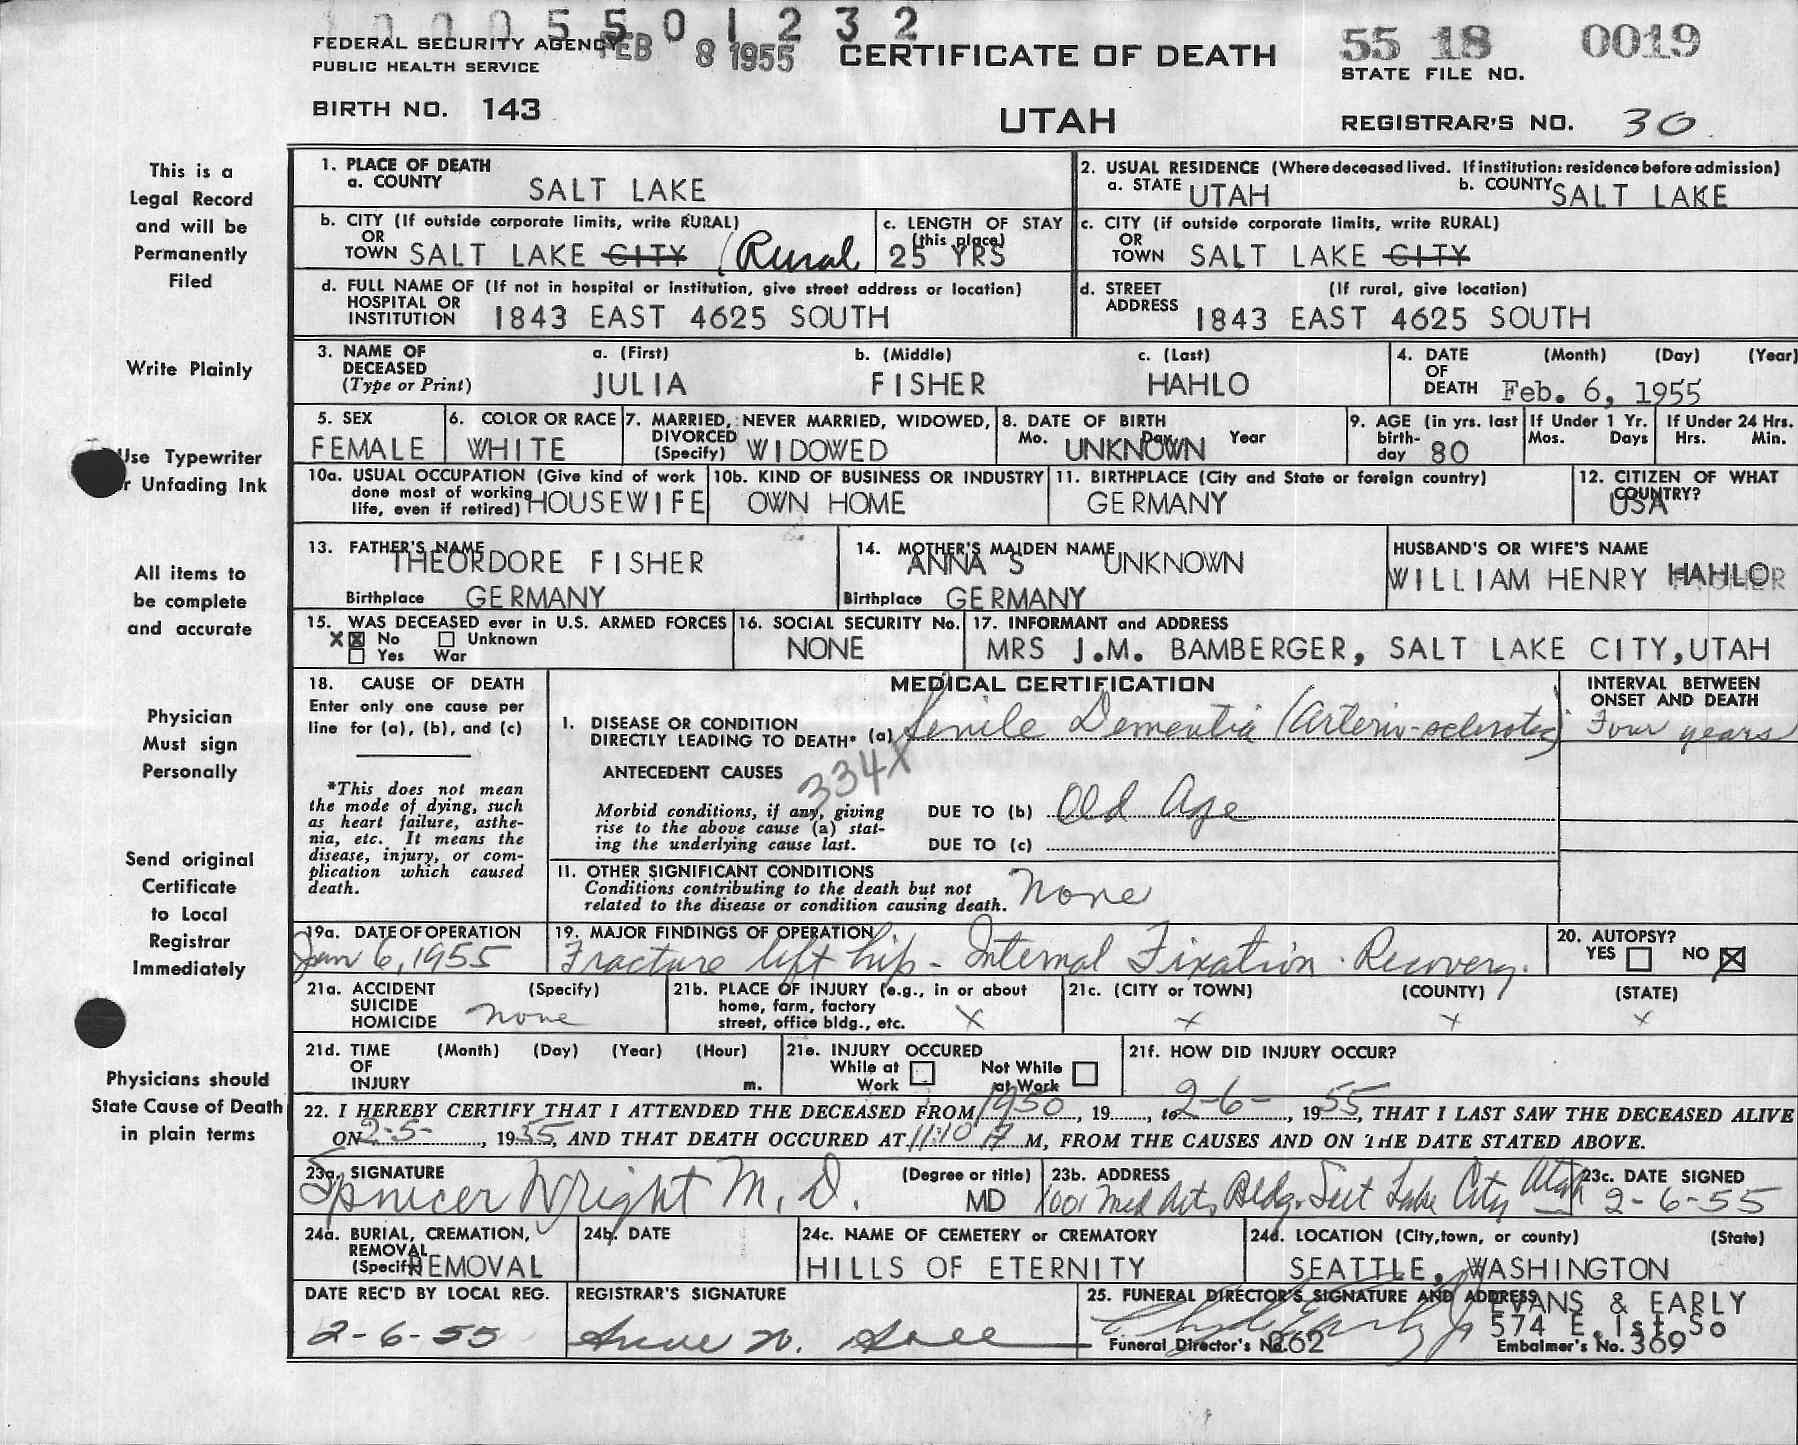 1000 5501232
FEDERAL SECURITY AGENCY FEB 8 1955 CERTIFICATE OF DEATH 55 18 0019
PUBLIC HEALTH SERVICE STATE FILE NO.
BIRTH NO. 143 UTAH REGISTRAR'S NO. 30
This is a
Legal Record
and will be
Permanently
Filed
Write Plainly
Use Typewriter
r Unfading Ink
All items to
be complete
and accurate
Physician
Must sign
Personally
Send original
Certificate
to Local
Registrar
Immediately
Physicians should
State Cause of Death
in plain terms
1. PLACE OF DEATH
a. COUNTY SALT LAKE
2. USUAL RESIDENCE (Where deceased lived. If institution: residence before admission)
a. STATE UTAH b. COUNTY SALT LAKE
b. CITY (If outside corporate limits, write RURAL)
OR
TOWN SALT LAKE CITY (Rural
c. LENGTH OF STAY
(this place)
25 YRS
c. CITY (if outside corporate limits, write RURAL)
OR
TOWN SALT LAKE CITY
d. FULL NAME OF (If not in hospital or institution, give street address or location)
HOSPITAL OR
INSTITUTION 1843 EAST 4625 SOUTH
d. STREET (If rural, give location)
ADDRESS 1843 EAST 4625 SOUTH
3. NAME OF a. (First) b. (Middle) c. (Last)
DECEASED
(Type or Print) JULIA FISHER HAHLO
4. DATE (Month) (Day) (Year)
OF
DEATH Feb. 6, 1955
5. SEX
FEMALE
6. COLOR OR RACE
WHITE
7. MARRIED, NEVER MARRIED, WIDOWED,
DIVORCED
(Specify) WIDOWED
8. DATE OF BIRTH
Mo. Day Year
UNKNOWN
9. AGE (in yrs. last
birth-
day 80
If Under 1 Yr.
Mos. Days
If Under 24 Hrs.
Hrs. Min.
10a. USUAL OCCUPATION (Give kind of work
done most of working
life, even if retired) HOUSEWIFE
10b. KIND OF BUSINESS OR INDUSTRY
OWN HOME
11. BIRTHPLACE (City and State or foreign country)
GERMANY
12. CITIZEN OF WHAT
COUNTRY?
USA
13. FATHER'S NAME
THEORDORE FISHER
Birthplace GERMANY
14. MOTHER'S MAIDEN NAME
ANNA S UNKNOWN
Birthplace GERMANY
HUSBAND'S OR WIFE'S NAME
WILLIAM HENRY HAHLO
15. WAS DECEASED ever in U.S. ARMED FORCES
X No Unknown
Yes War
16. SOCIAL SECURITY No.
NONE
17. INFORMANT and ADDRESS
MRS J.M. BAMBERGER, SALT LAKE CITY, UTAH
18. CAUSE OF DEATH
Enter only one cause per
line for (a), (b), and (c)
*This does not mean
the mode of dying, such
as heart failure, asthe-
nia, etc. It means the
disease, injury, or com-
plication which caused
death.
MEDICAL CERTIFICATION
I. DISEASE OR CONDITION
DIRECTLY LEADING TO DEATH* (a) Senile Dementia (Arterio-sclerotic)
INTERVAL BETWEEN
ONSET AND DEATH
Four years
ANTECEDENT CAUSES 334X
Morbid conditions, if any, giving
rise to the above cause (a) stat-
ing the underlying cause last.
DUE TO (b) Old Age
DUE TO (c)
11. OTHER SIGNIFICANT CONDITIONS
Conditions contributing to the death but not
related to the disease or condition causing death. None
19a. DATE OF OPERATION
Jan 6, 1955
19. MAJOR FINDINGS OF OPERATION
Fracture left hip - Internal Fixation. Recovery.
20. AUTOPSY?
YES NO X
21a. ACCIDENT (Specify)
SUICIDE
HOMICIDE none
21b. PLACE OF INJURY (e.g., in or about
home, farm, factory
street, office bldg., etc. X
21c. (CITY or TOWN) (COUNTY) (STATE)
X X X
21d. TIME (Month) (Day) (Year) (Hour)
OF
INJURY m.
21e. INJURY OCCURED
While at Not While
Work at Work
21f. HOW DID INJURY OCCUR?
22. I HEREBY CERTIFY THAT I ATTENDED THE DECEASED FROM 1950, 19, to 2-6-, 1955, THAT I LAST SAW THE DECEASED ALIVE
ON 2-5-, 1955, AND THAT DEATH OCCURED AT 11:10 P M, FROM THE CAUSES AND ON THE DATE STATED ABOVE.
23a. SIGNATURE (Degree or title)
Spencer Wright M.D. MD
23b. ADDRESS
1001 Med Arts Bldg. Salt Lake City Utah
23c. DATE SIGNED
2-6-55
24a. BURIAL, CREMATION,
REMOVAL
(Specify) REMOVAL
24b. DATE
24c. NAME OF CEMETERY or CREMATORY
HILLS OF ETERNITY
24d. LOCATION (City, town, or county) (State)
SEATTLE, WASHINGTON
DATE REC'D BY LOCAL REG.
2-6-55
REGISTRAR'S SIGNATURE
25. FUNERAL DIRECTOR'S SIGNATURE AND ADDRESS
EVANS & EARLY
574 E. 1st So
Funeral Director's No. 262 Embalmer's No. 369